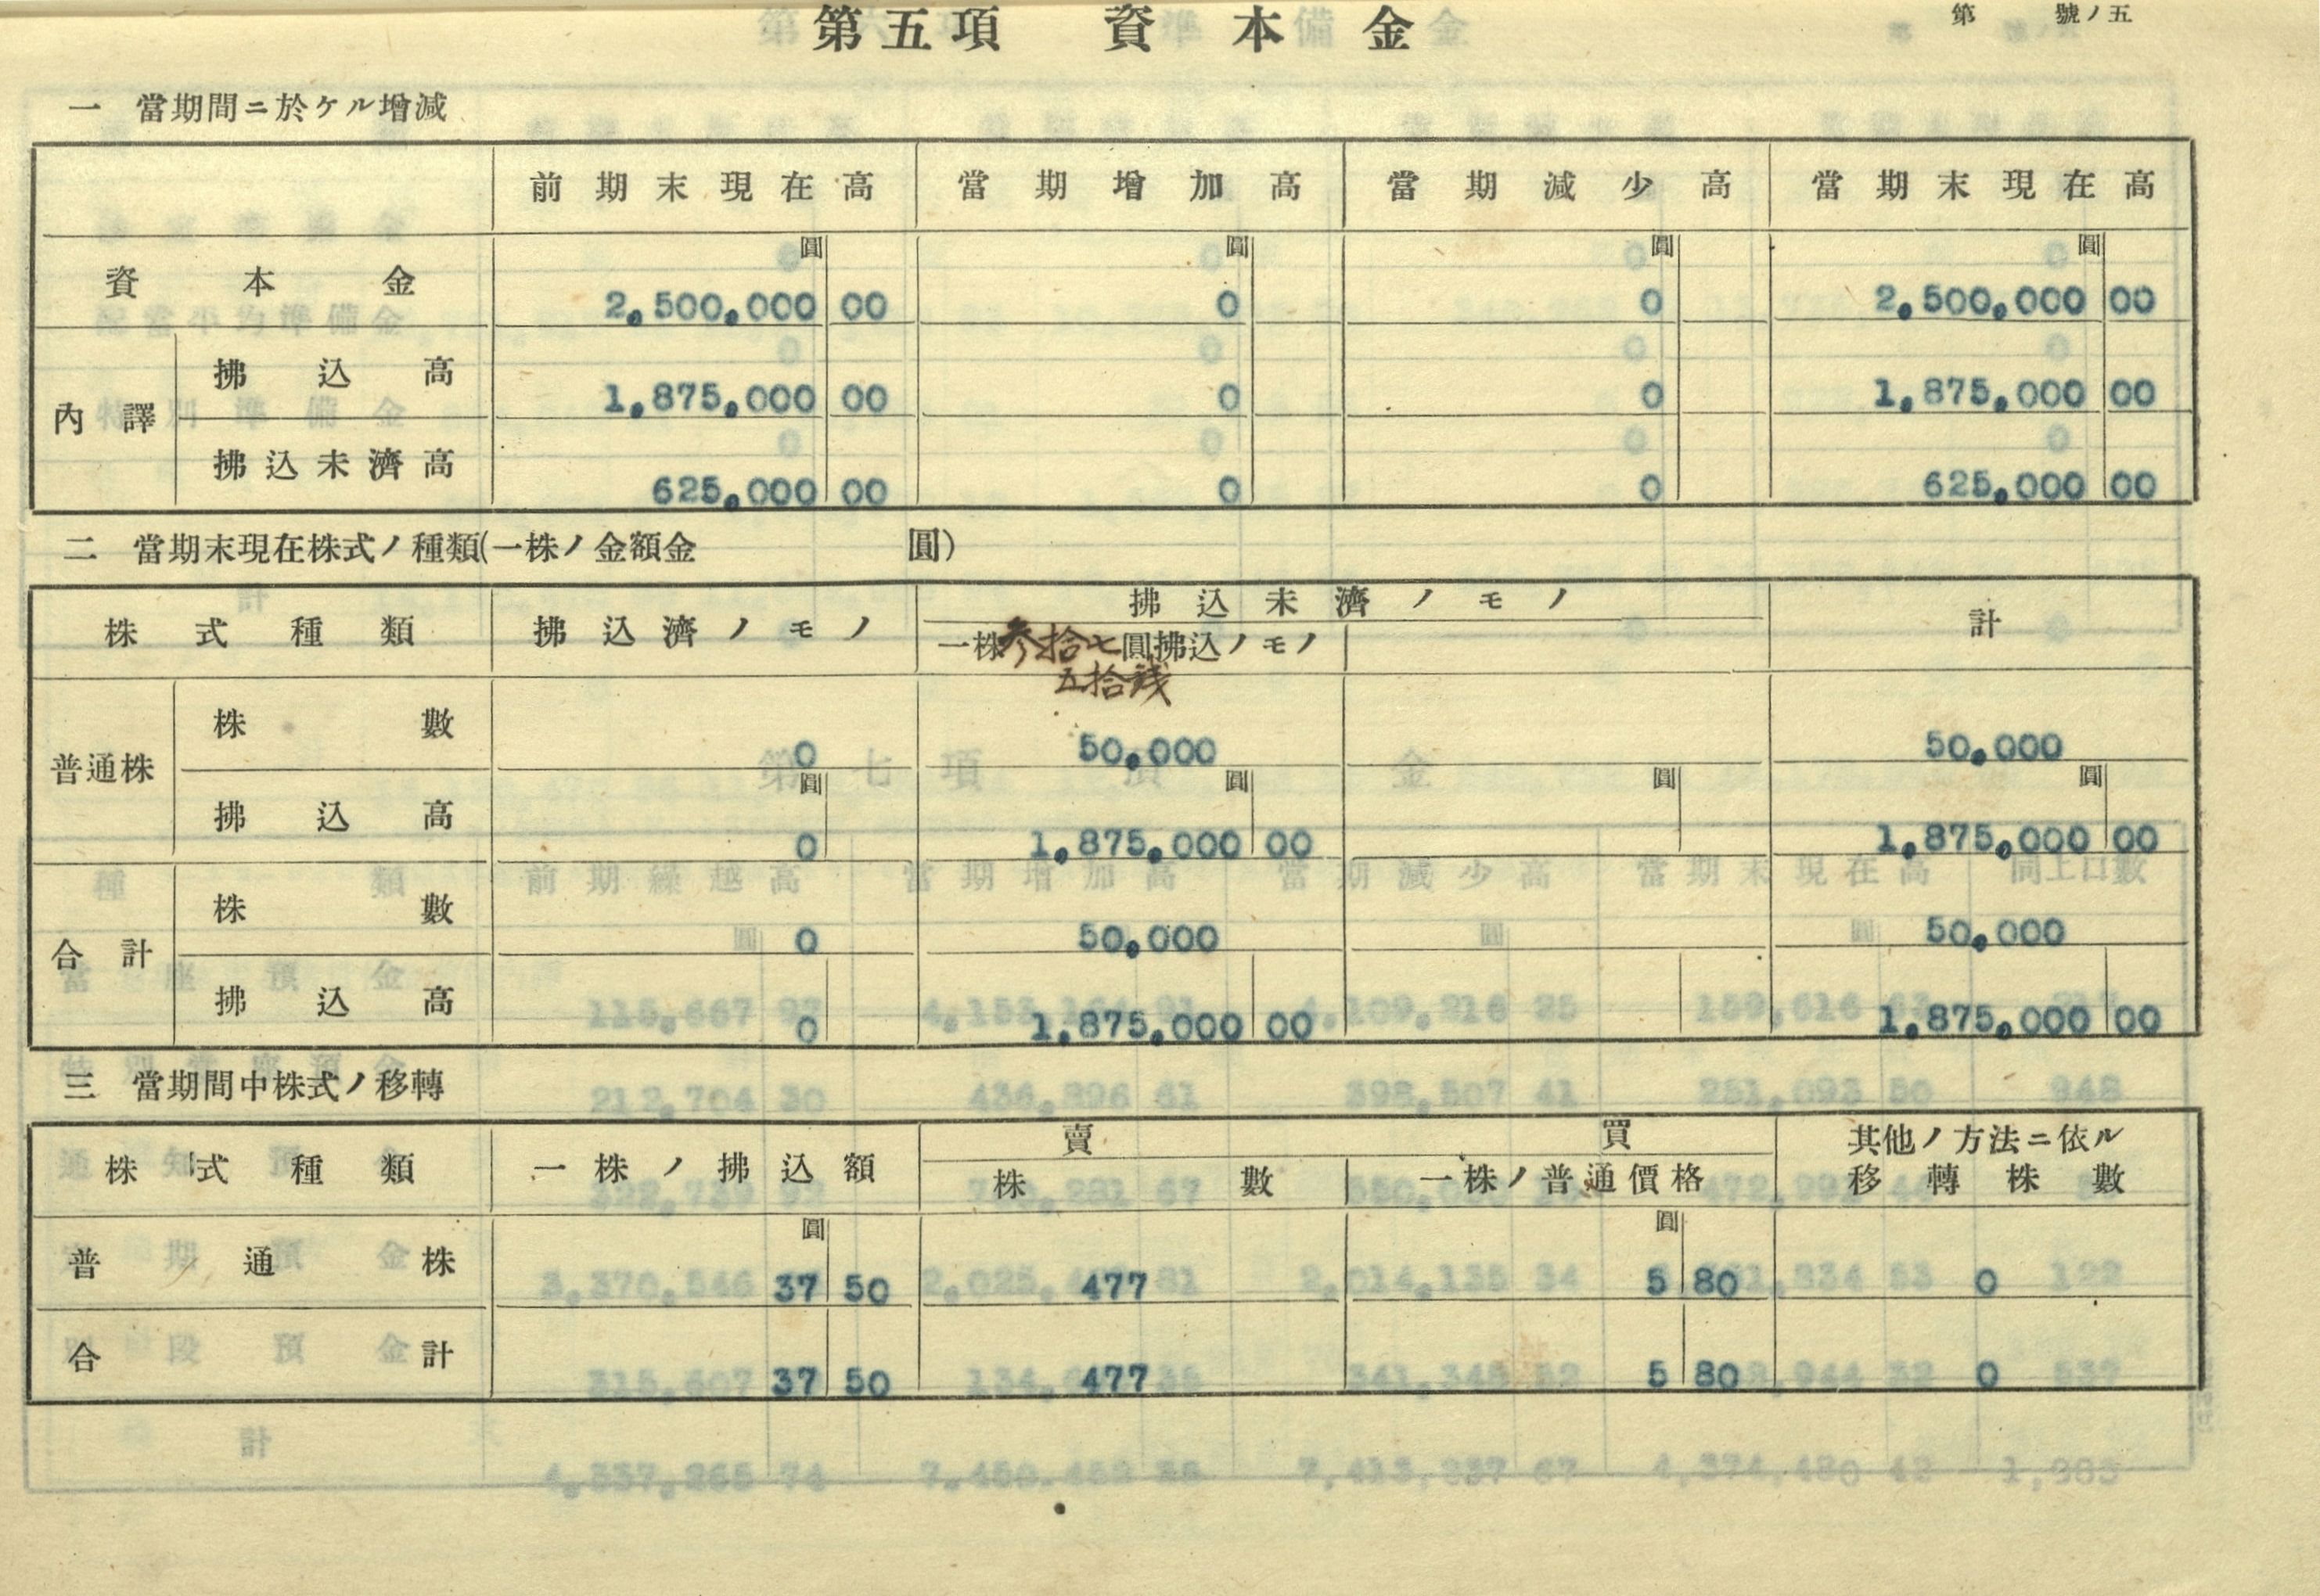 第五項 資本金
第 號ノ五
一 當期間ニ於ケル增減
前期末現在高 當期增加高 當期減少高 當期末現在高
圓 圓 圓 圓
資本金 2,500,000 00 0 0 2,500,000 00
內譯
拂込高 1,875,000 00 0 0 1,875,000 00
拂込未濟高 625,000 00 0 0 625,000 00
二 當期末現在株式ノ種類(一株ノ金額金 圓)
株式種類 拂込濟ノモノ 拂込未濟ノモノ 計
一株參拾七圓拂込ノモノ
五拾錢
普通株
株數 0 50,000 50,000
圓 圓 圓 圓
拂込高 0 1,875,000 00 1,875,000 00
合計
株數 0 50,000 50,000
拂込高 0 1,875,000 00 1,875,000 00
三 當期間中株式ノ移轉
株式種類 一株ノ拂込額 賣買 其他ノ方法ニ依ル
株數 一株ノ普通價格 移轉株數
圓 圓
普通株 37 50 477 5 80 0
合計 37 50 477 5 80 0